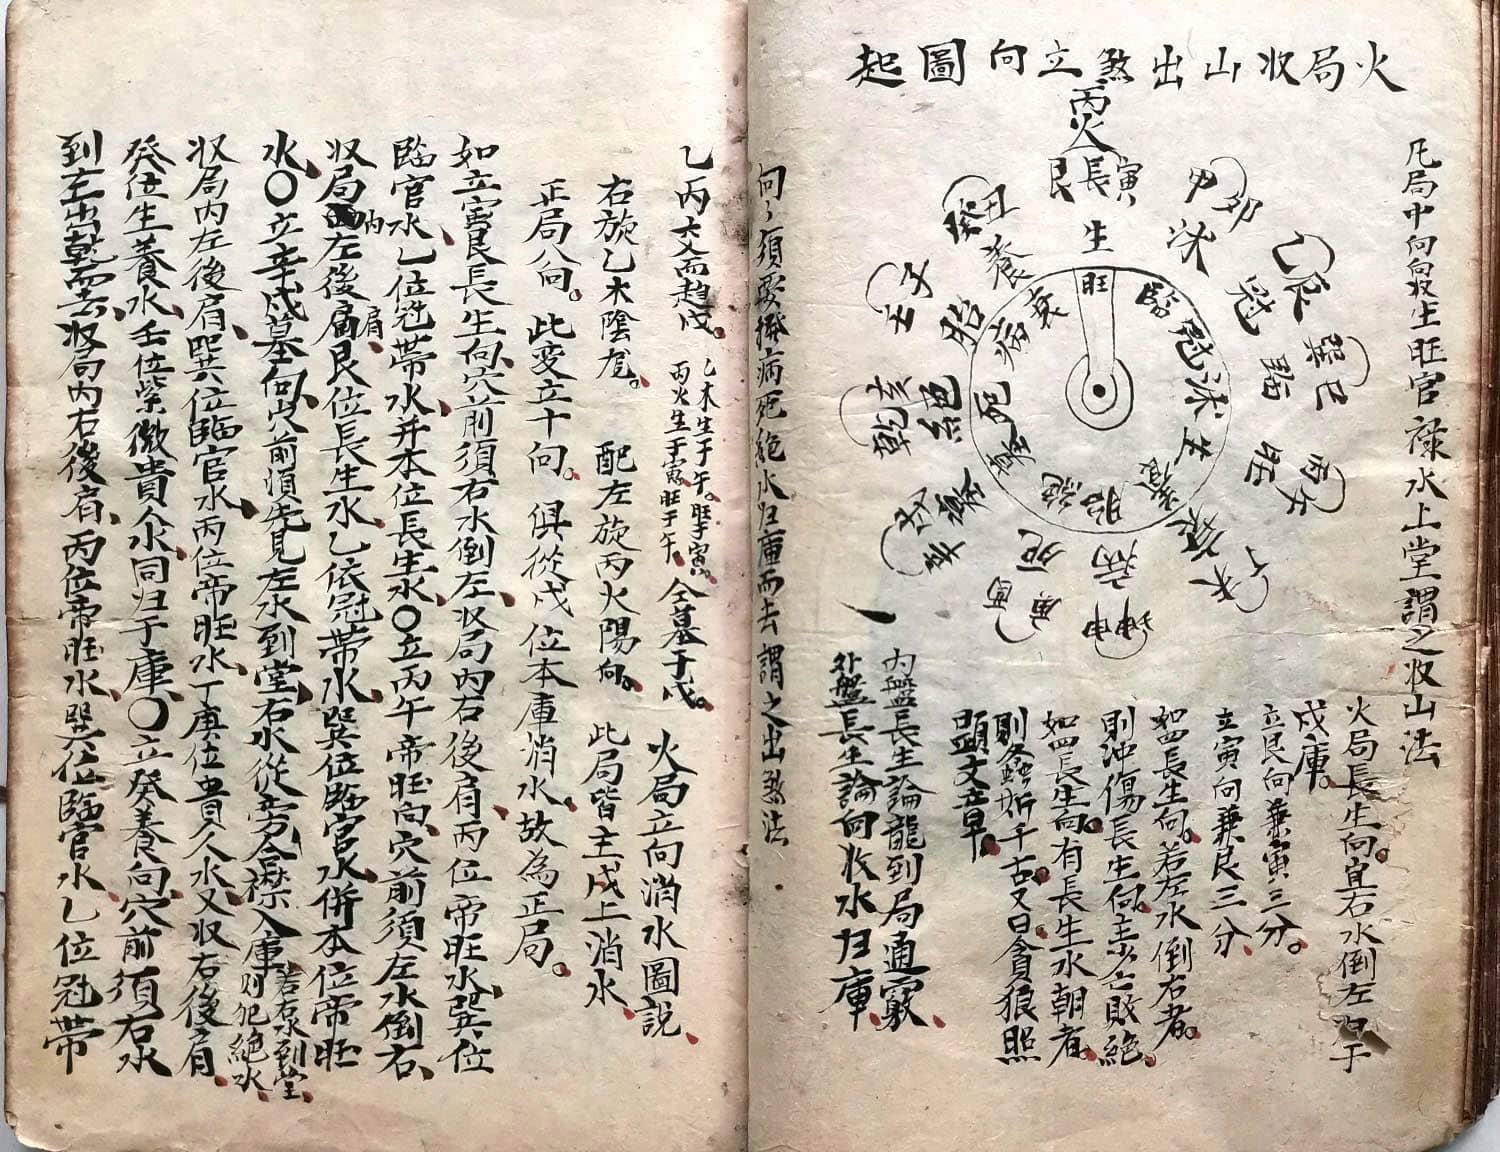 火局收山出煞立向圖起
凡局中向向收生旺官祿水上堂謂之收山法
丙火
寅
長
艮
生
甲卯
沐
乙辰
冠
巽巳
臨
丙午
旺
丁未
衰
坤申
病
庚酉
死
辛戌
墓
乾亥
絕
壬子
胎
癸丑
養
旺
臨
冠
沐
生
養
胎
絕
墓
死
病
衰
火局長生向宜右水倒左歸于
戌庫。
立艮向兼寅三分。
立寅向兼艮三分
如四長生向。若左水倒右者。
則沖傷長生向。主少亡敗絕
如四長生向。有長生水朝者。
則螽蟴千古。又曰貪狼照
顕文章。
內盤長生論龍到局通竅
外盤長生論向收水归庫
向向須要撥病死絕水归庫而去謂之出煞法
乙丙交而趨戌。乙木生于午。旺于寅。丙火生于寅旺于午。仝墓于戌。火局立向消水圖説
右旋乙木陰龙。配左旋丙火陽向。此局皆主戌上消水
正局八向。此变立十向。俱從戌位本庫消水。故為正局。
如立寅艮長生向穴前須右水倒左收局内右後肩丙位帝旺水巽位
臨官水乙位冠帶水并本位長生水〇立丙午帝旺向穴前須左水倒右
收局內左後肩艮位長生水乙依冠帶水巽位臨官水併本位帝旺
水〇立辛戌墓向穴前須先見左水到堂右水從旁合襟入庫若右水到堂則犯絕水
收局内左後肩巽位臨官水丙位帝旺水丁庚位貴人水又收右後肩
癸位生養水壬位紫微貴人水同归于庫〇立癸養向穴前須右水
到左出乾而去收局内右後肩丙位帝旺水巽位臨官水乙位冠帶